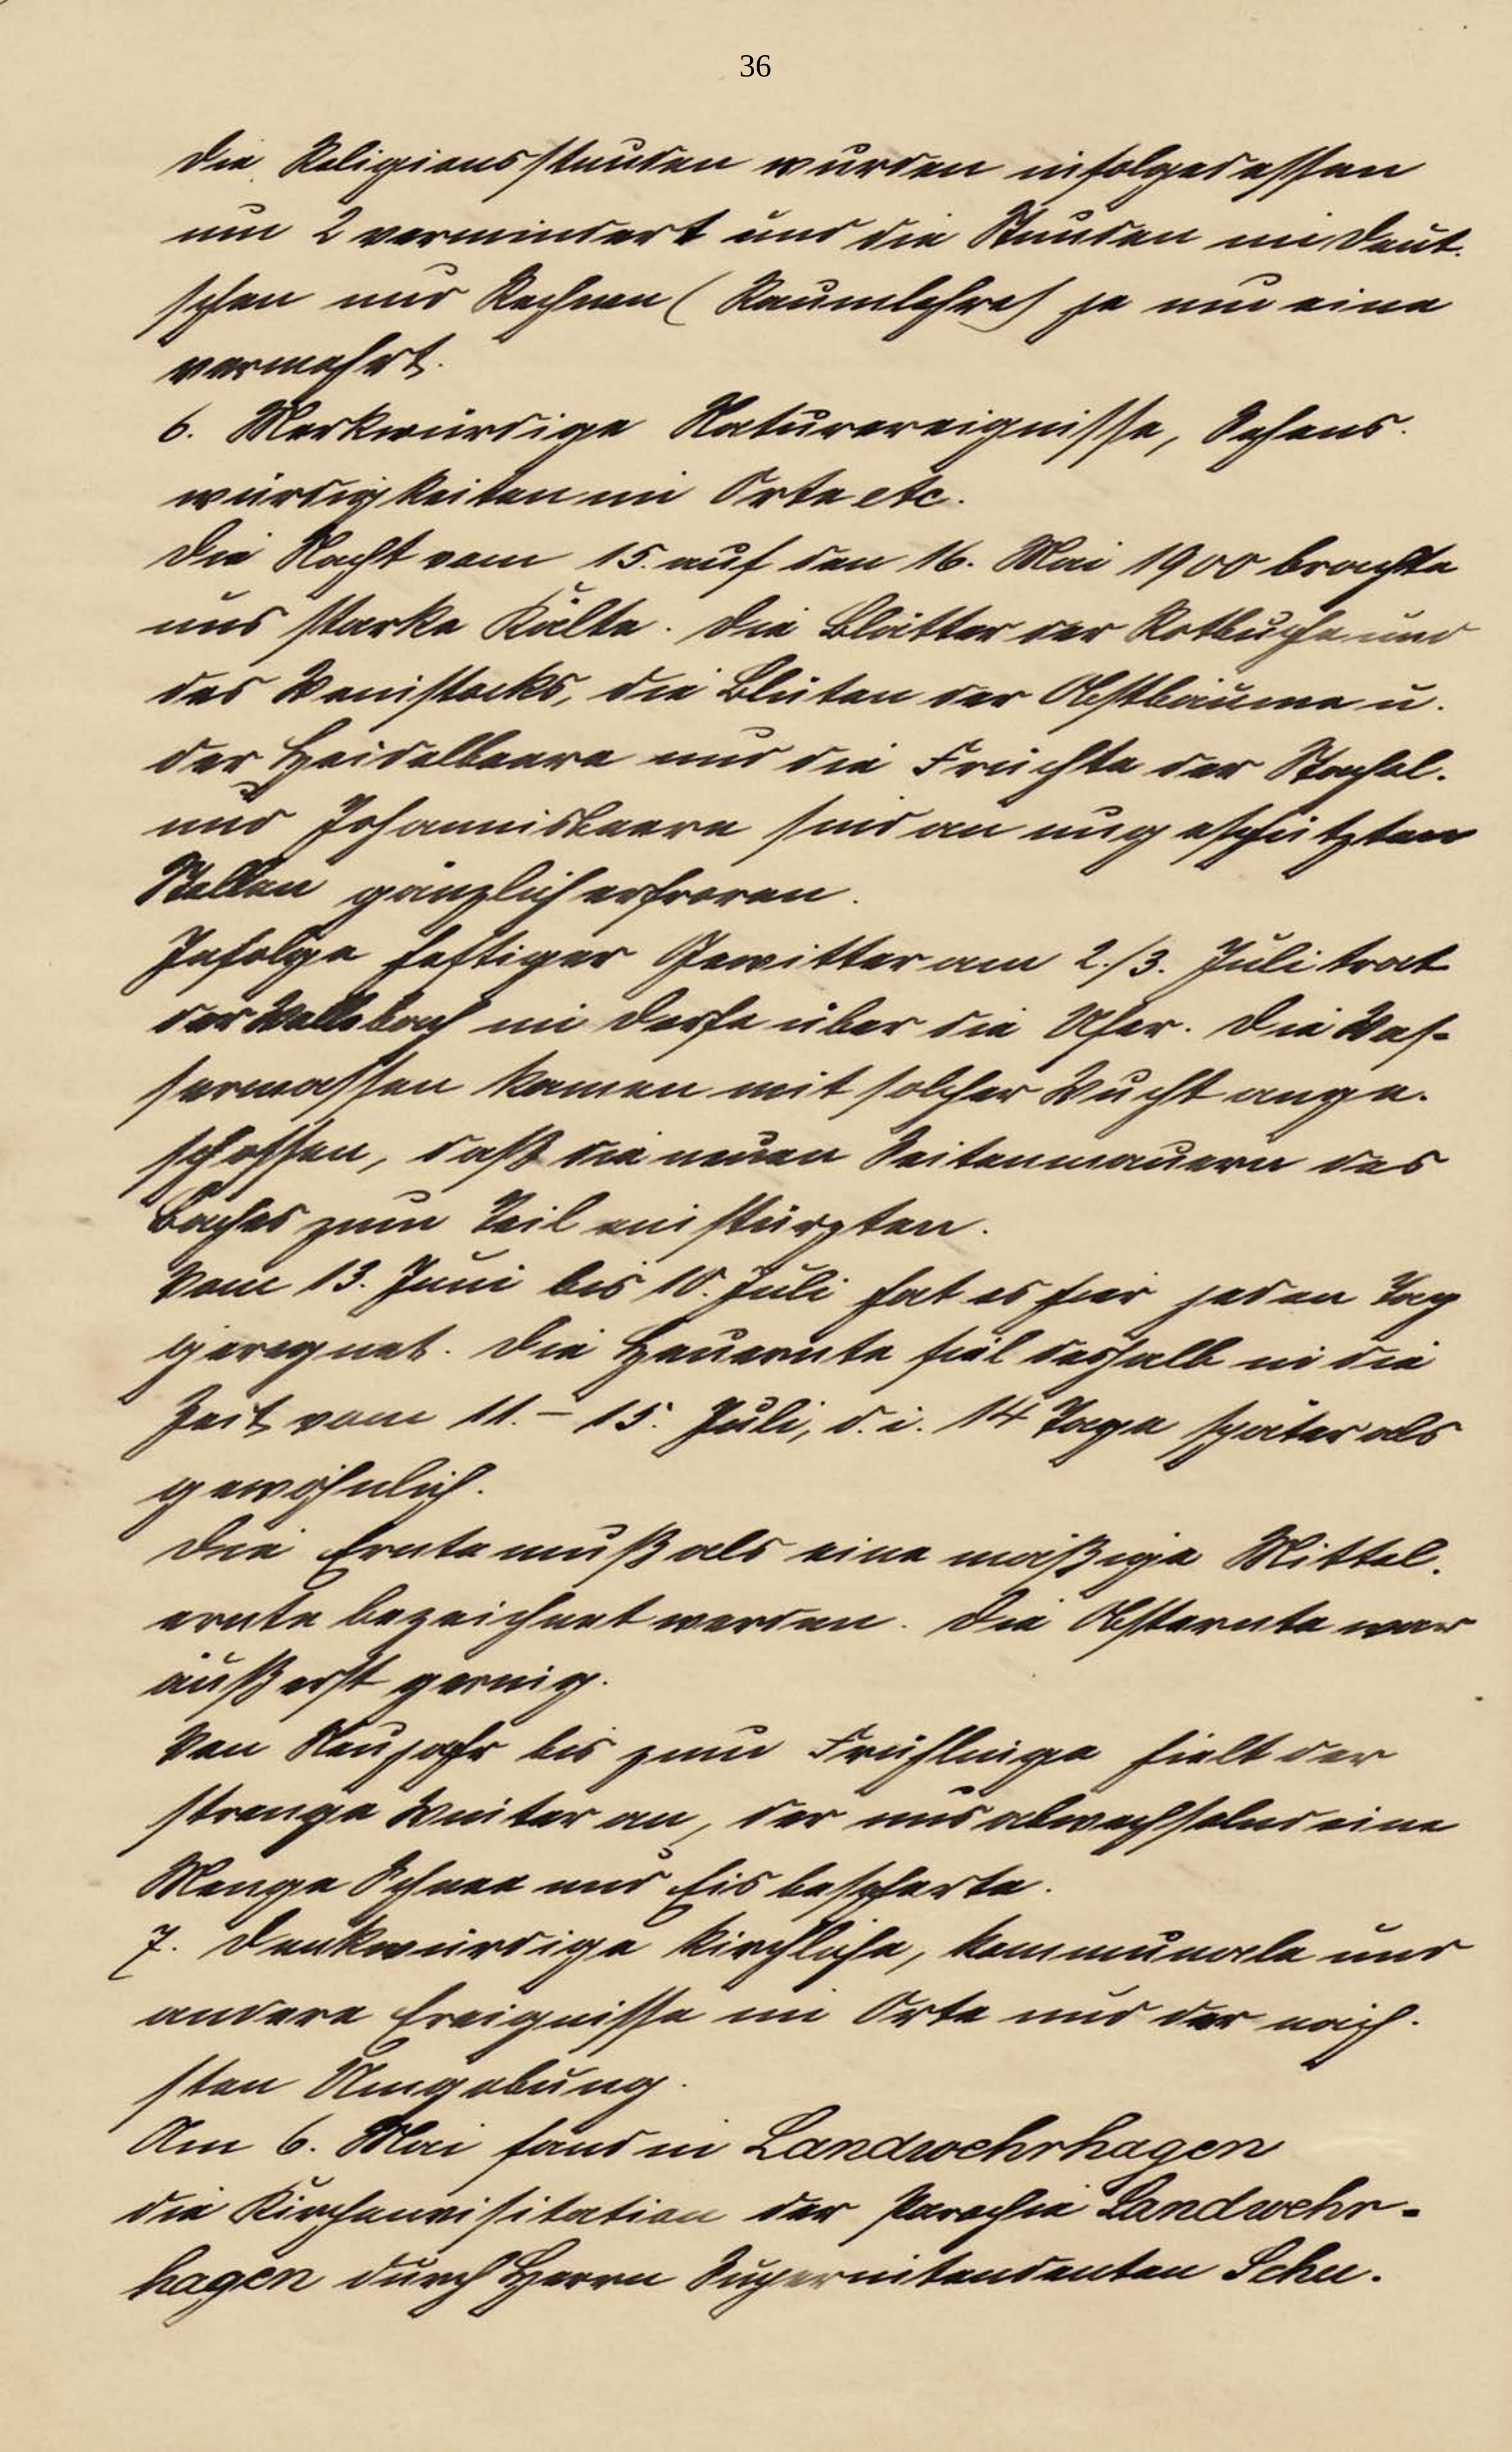 36
Die Religionsstunden wurden infolgedessen
um 2 vermindert und die Stunden im Deut-
schen und Rechnen (Raumlehre) je um eine
vermehrt.
6. Merkwürdige Naturereignisse, Sehens-
würdigkeiten im Orte etc.
Die Nacht vom 15. auf den 16. Mai 1900 brachte
uns starke Kälte. Die Blätter der Rotbuche und
des Weinstocks, die Blüten der Obstbäume u.
der Heidelbeere und die Früchte der Stachel-
und Johannisbeere sind an ungeschützten
Stellen gänzlich erfroren.
Infolge heftiger Gewitter am 2./3. Juli trat
der Wellebach im Dorfe über die Ufer. Die Was-
sermassen kamen mit solcher Wucht ange-
schossen, daß die neuen Seitenmauern des
Baches zum Teil einstürzten.
Vom 13. Juni bis 10. Juli hat es hier jeden Tag
geregnet. Die Heuernte fiel deshalb in die
Zeit vom 11. – 15. Juli, d. i. 14 Tage später als
gewöhnlich.
Die Ernte muß als eine mäßige Mittel-
ernte bezeichnet werden. Die Obsternte war
äußerst gering.
Von Neujahr bis zum Frühlinge hielt der
strenge Winter an, der uns abwechselnd eine
Menge Schnee und Eis bescherte.
7. Denkwürdige kirchliche, kommunale und
andere Ereignisse im Orte und der näch-
sten Umgebung.
Am 6. Mai fand in Landwehrhagen
die Kirchenvisitation der Parochie Landwehr-
hagen durch Herrn Superintendenten Schu-